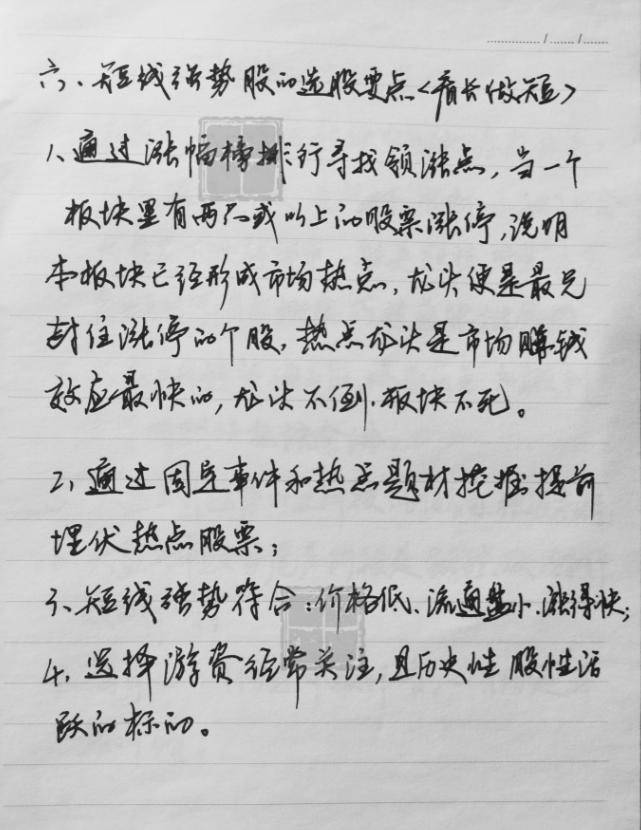 六、短线强势股的选股要点<看长做短>
1、通过涨幅榜排行寻找领涨点,当一个
板块里有两只或以上的股票涨停,说明
本板块已经形成市场热点,龙头便是最先
封住涨停的个股,热点龙头是市场赚钱
效应最快的,龙头不倒.板块不死。
2、通过固定事件和热点题材挖掘提前
埋伏热点股票;
3、短线强势符合:价格低、流通盘小、涨得快;
4、选择游资经常关注,且历史性股性活
跃的标的。